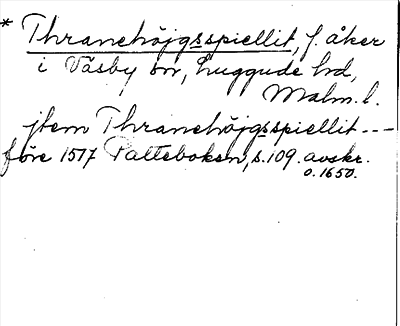 * Thranehöjgsspiellit, f. åker
i Väsby sn, Luggude hd,
Malm. l.
jtem Thranehöjgsspiellit ---
före 1517 Palteboken, s. 109. avskr.
o. 1650.